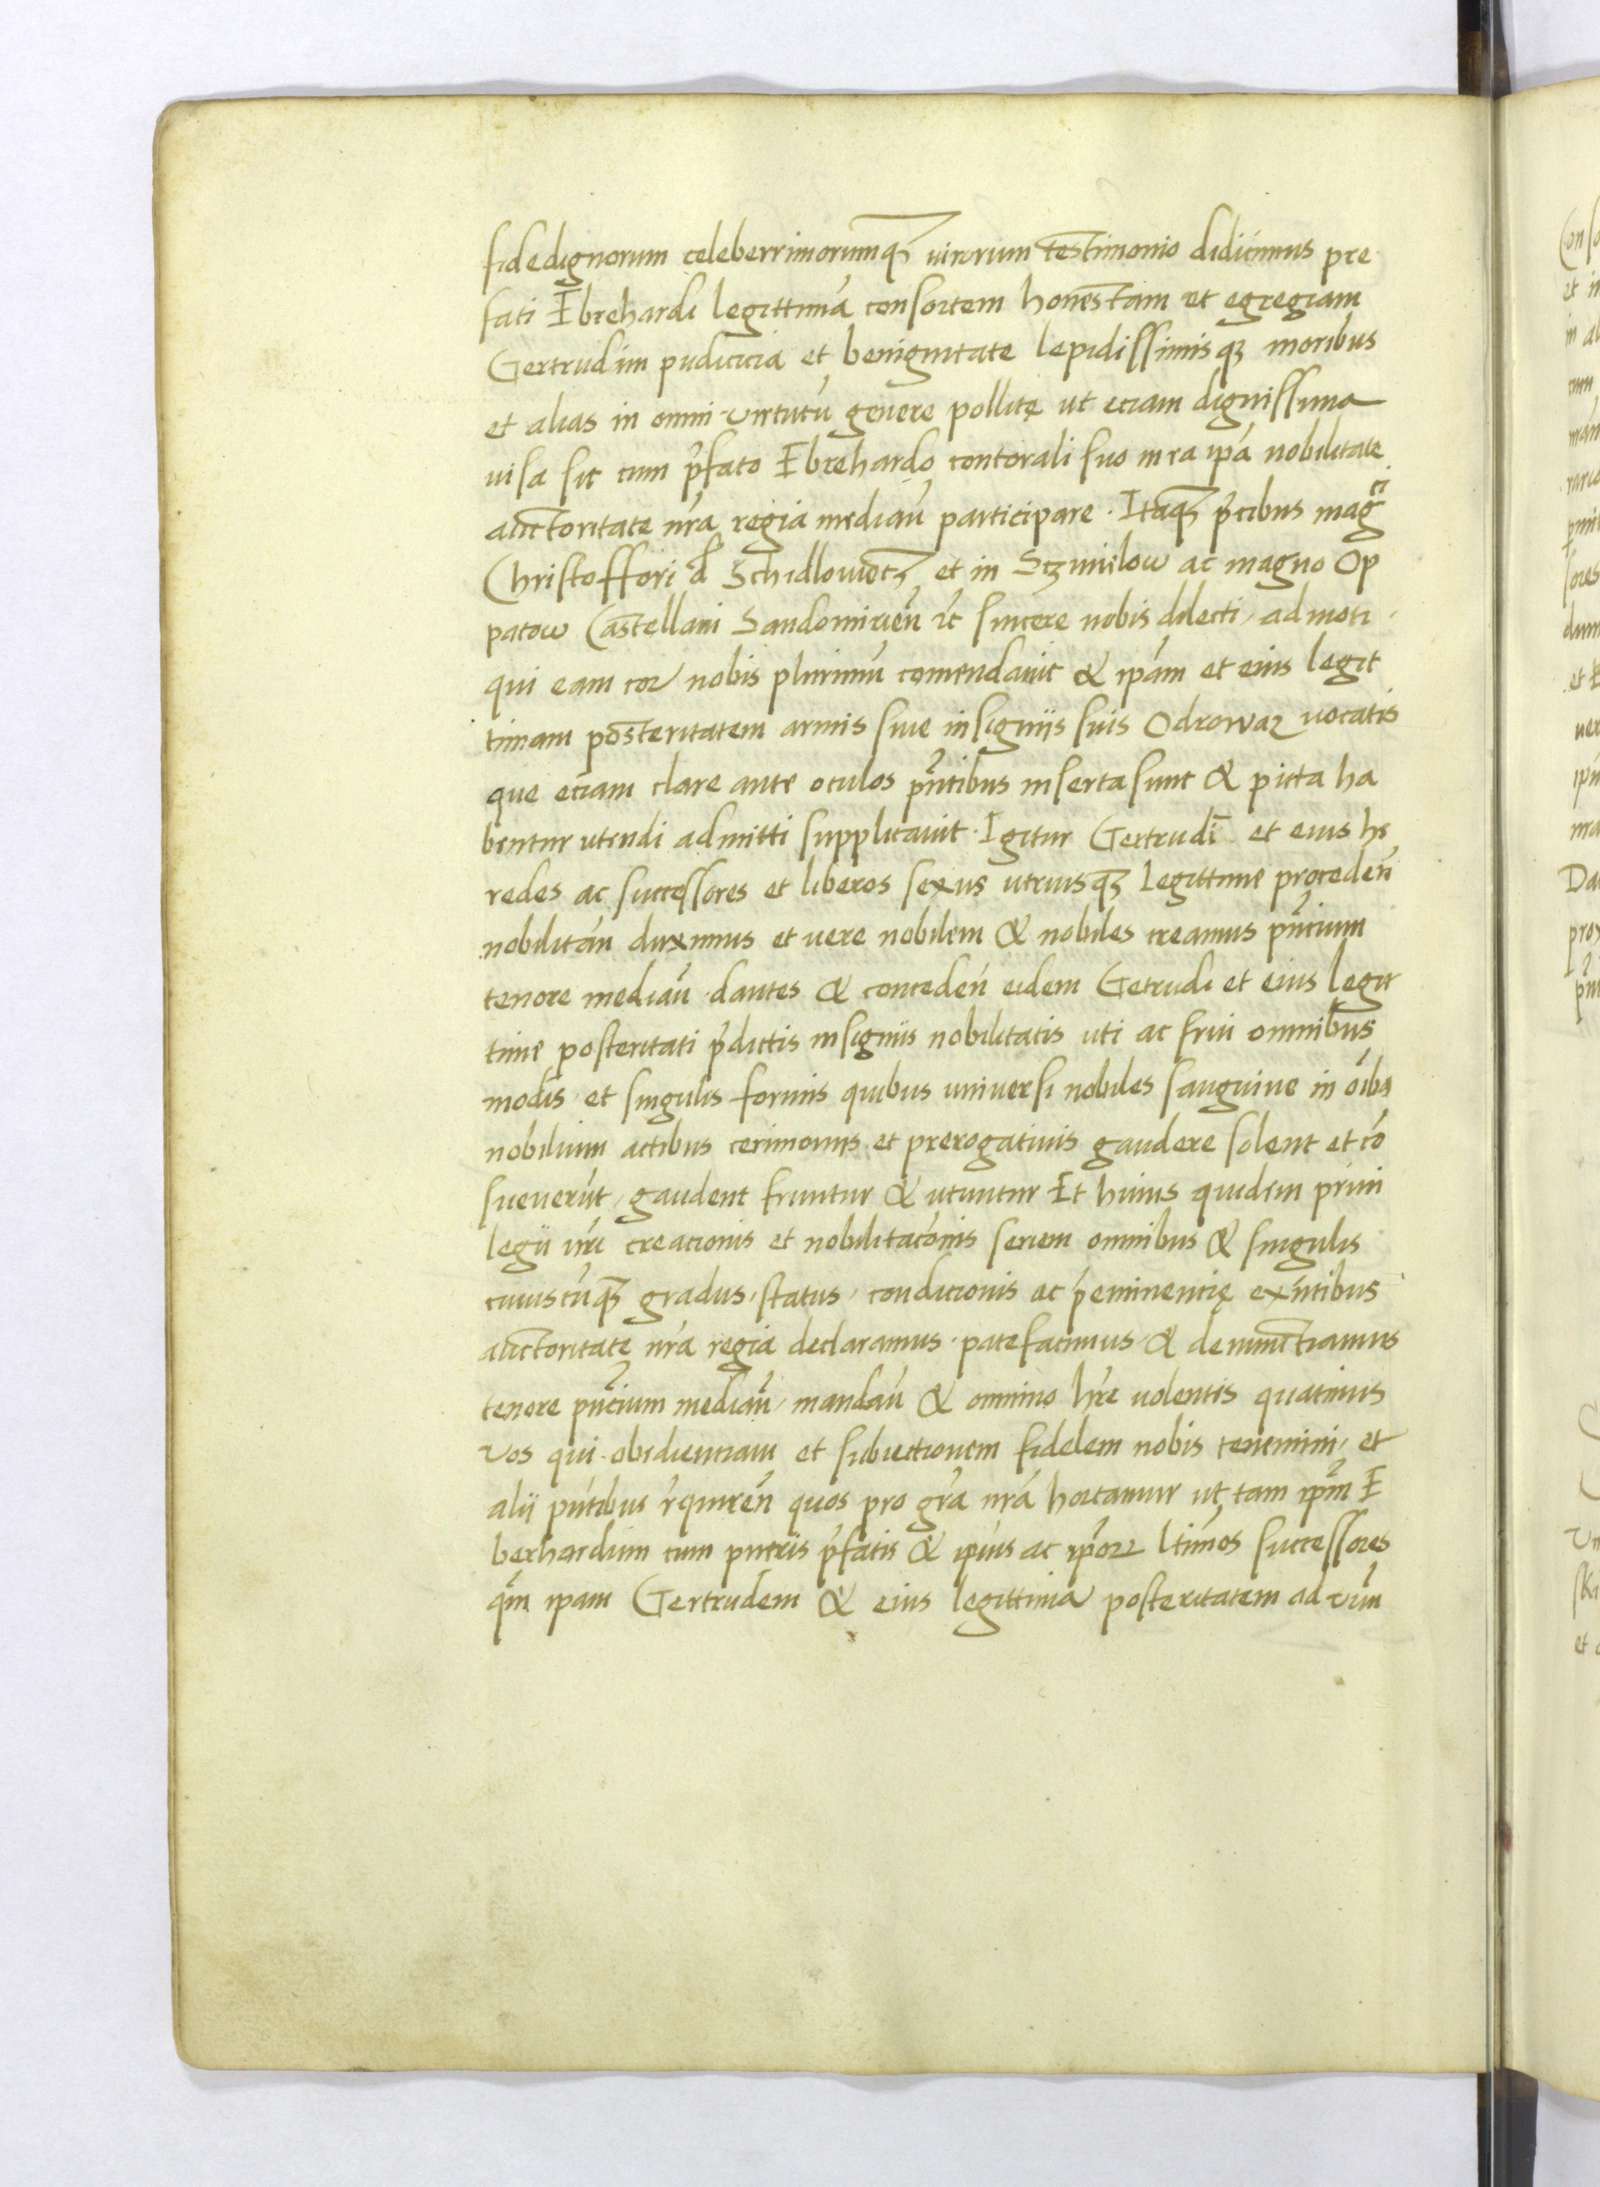 fidedignorum celeberrimorumqꝫ virorum testimonio didicimus pre
fati Ebrehardi legittimā consortem honestam et egregiam
Gertrudim pudicicia et benignitate lepidissimisqꝫ moribus
et alias in omni virtutū genere pollite ut eciam dignissima
visa sit cum p̄fato Ebrehardo contorali suo in ea ip̄a nobilitate
auctoritate nr̄a regia mediāū participare · Itaqꝫ p̄cibus magci
Christoffori d Schidlowietꝫ et in Sczmielow ac magno Op
patow Castellani Sandomirieñ ꝛc sincere nobis dilecti, admoti
qui eam cor̄ nobis plurimū comendavit & ip̄am et eius legit
timam posteritatem armis sive insigniis suis Odrowaz vocatis
que eciam clare ante oculos pn̄tibus inserta sunt & picta ha
bentur utendi admitti supplicavit · Igitur Gertrudī et eius he
redes ac successores et liberos sexus utriusqꝫ legittime procedeñ
nobilitāñ duximus et vere nobilem & nobiles creamus pn̄cium
tenore mediāū · dantes & concedeñ eidem Getrudi et eius legit
time posteritati p̄dictis insigniis nobilitatis uti ac frui omnibus
modis et singulis formis quibus universi nobiles sanguine in oībꝫ
nobilium actibus cerimoniis et prerogativis gaudere solent et cō
sueverūt, gaudent fruntur & utuntur Et huius quidem privi
legii nr̄i creacionis et nobilitacōnis seriem omnibus & singulis
cuiuscūqꝫ gradus, status, condicionis ac p̄eminencię exn̄tibus
auctoritate nr̄a regia declaramus · patefacimus & denunctiamus
tenore pn̄cium mediāū, mandāū & omnino hr̄e volentes quatinus
vos qui obedienciam et subiectionem fidelem nobis tenemini, et
alii pn̄tibus r̄quireñ quos pro gr̄a nr̄a hortamur ut tam ip̄m E
berhardum cum pueris p̄fatis & ip̄ius ac ip̄oꝝ ltimos successores
q̄m ipam Gertrudem & eius legittimā posteritatem ad vim